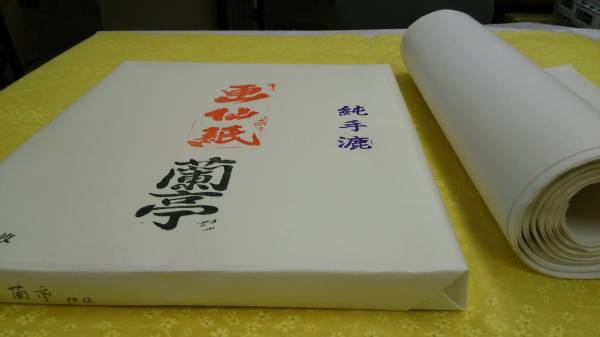 純手漉
画仙紙
蘭亭
枚
蘭亭